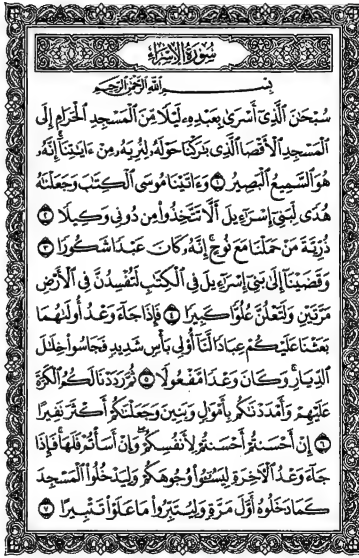 سُورَةُ الإِسْرَاءِ
بِسْمِ اللَّهِ الرَّحْمَٰنِ الرَّحِيمِ
سُبْحَٰنَ ٱلَّذِىٓ أَسْرَىٰ بِعَبْدِهِۦ لَيْلًا مِّنَ ٱلْمَسْجِدِ ٱلْحَرَامِ إِلَى
ٱلْمَسْجِدِ ٱلْأَقْصَا ٱلَّذِى بَٰرَكْنَا حَوْلَهُۥ لِنُرِيَهُۥ مِنْ ءَايَٰتِنَآ ۚ إِنَّهُۥ
هُوَ ٱلسَّمِيعُ ٱلْبَصِيرُ ١ وَءَاتَيْنَا مُوسَى ٱلْكِتَٰبَ وَجَعَلْنَٰهُ
هُدًى لِّبَنِىٓ إِسْرَٰٓءِيلَ أَلَّا تَتَّخِذُوا۟ مِن دُونِى وَكِيلًا ٢
ذُرِّيَّةَ مَنْ حَمَلْنَا مَعَ نُوحٍ ۚ إِنَّهُۥ كَانَ عَبْدًا شَكُورًا ٣
وَقَضَيْنَآ إِلَىٰ بَنِىٓ إِسْرَٰٓءِيلَ فِى ٱلْكِتَٰبِ لَتُفْسِدُنَّ فِى ٱلْأَرْضِ
مَرَّتَيْنِ وَلَتَعْلُنَّ عُلُوًّا كَبِيرًا ٤ فَإِذَا جَآءَ وَعْدُ أُولَىٰهُمَا
بَعَثْنَا عَلَيْكُمْ عِبَادًا لَّنَآ أُو۟لِى بَأْسٍ شَدِيدٍ فَجَاسُوا۟ خِلَٰلَ
ٱلدِّيَارِ ۚ وَكَانَ وَعْدًا مَّفْعُولًا ٥ ثُمَّ رَدَدْنَا لَكُمُ ٱلْكَرَّةَ
عَلَيْهِمْ وَأَمْدَدْنَٰكُم بِأَمْوَٰلٍ وَبَنِينَ وَجَعَلْنَٰكُمْ أَكْثَرَ نَفِيرًا
٦ إِنْ أَحْسَنتُمْ أَحْسَنتُمْ لِأَنفُسِكُمْ ۖ وَإِنْ أَسَأْتُمْ فَلَهَا ۚ فَإِذَا
جَآءَ وَعْدُ ٱلْـَٔاخِرَةِ لِيَسُۥٓـُٔوا۟ وُجُوهَكُمْ وَلِيَدْخُلُوا۟ ٱلْمَسْجِدَ
كَمَا دَخَلُوهُ أَوَّلَ مَرَّةٍ وَلِيُتَبِّرُوا۟ مَا عَلَوْا۟ تَتْبِيرًا ٧